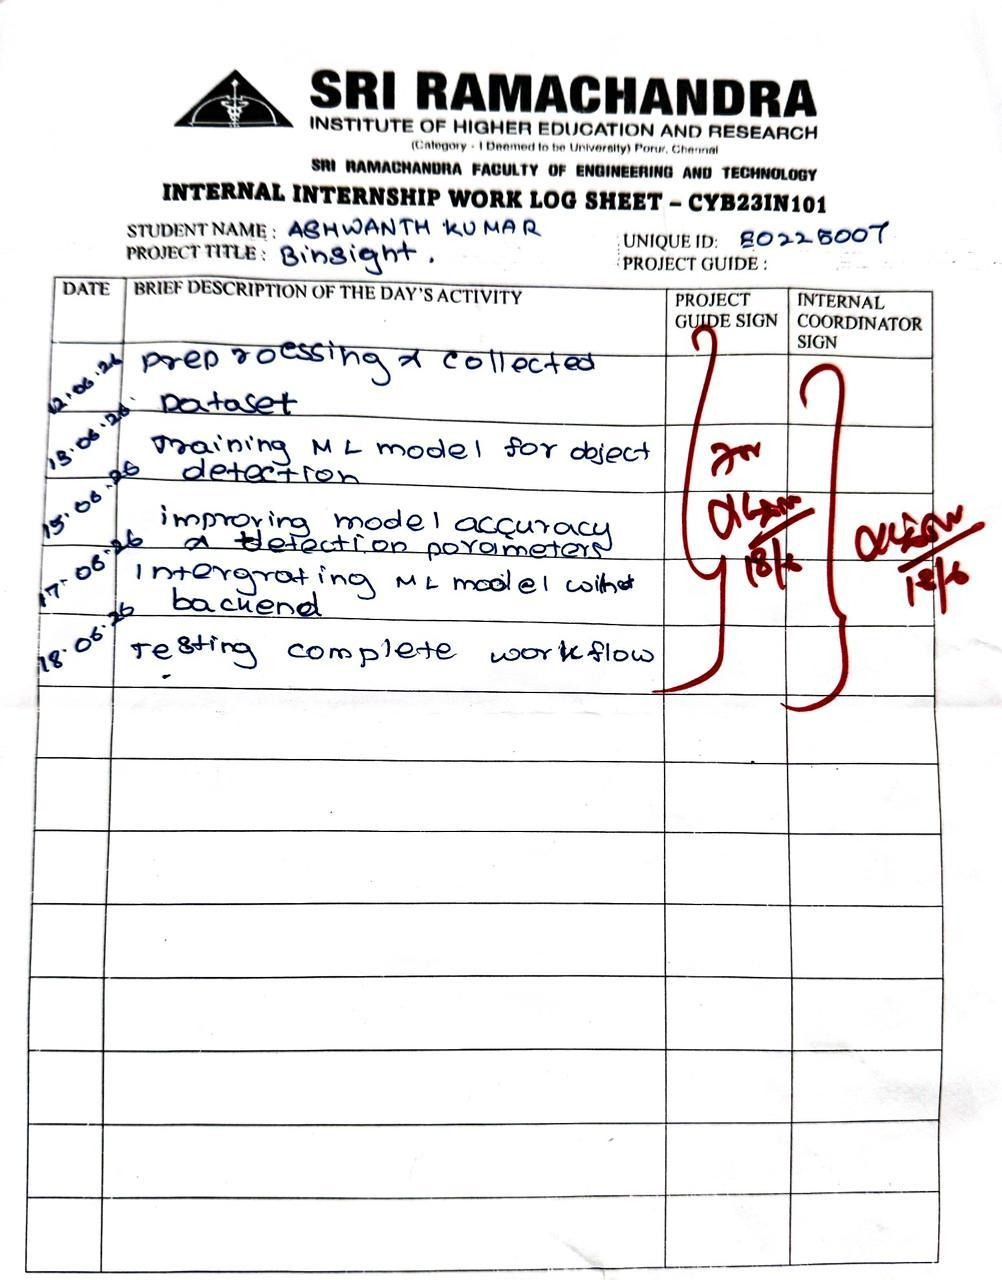 SRI RAMACHANDRA
INSTITUTE OF HIGHER EDUCATION AND RESEARCH
(Category - I Deemed to be University) Porur, Chennai
SRI RAMACHANDRA FACULTY OF ENGINEERING AND TECHNOLOGY
INTERNAL INTERNSHIP WORK LOG SHEET – CYB23IN101
STUDENT NAME : ASHWANTH KUMAR
UNIQUE ID: E0225007
PROJECT TITLE : Binsight.
PROJECT GUIDE :
DATE BRIEF DESCRIPTION OF THE DAY'S ACTIVITY PROJECT GUIDE SIGN INTERNAL COORDINATOR SIGN
12.06.26 preprocessing & collected
Dataset
13.06.26 Training ML model for object
detection
15.06.26 improving model accuracy
& detection parameters
17.06.26 Intergrating ML model with
backend
18.06.26 Testing complete workflow
18/6
18/6